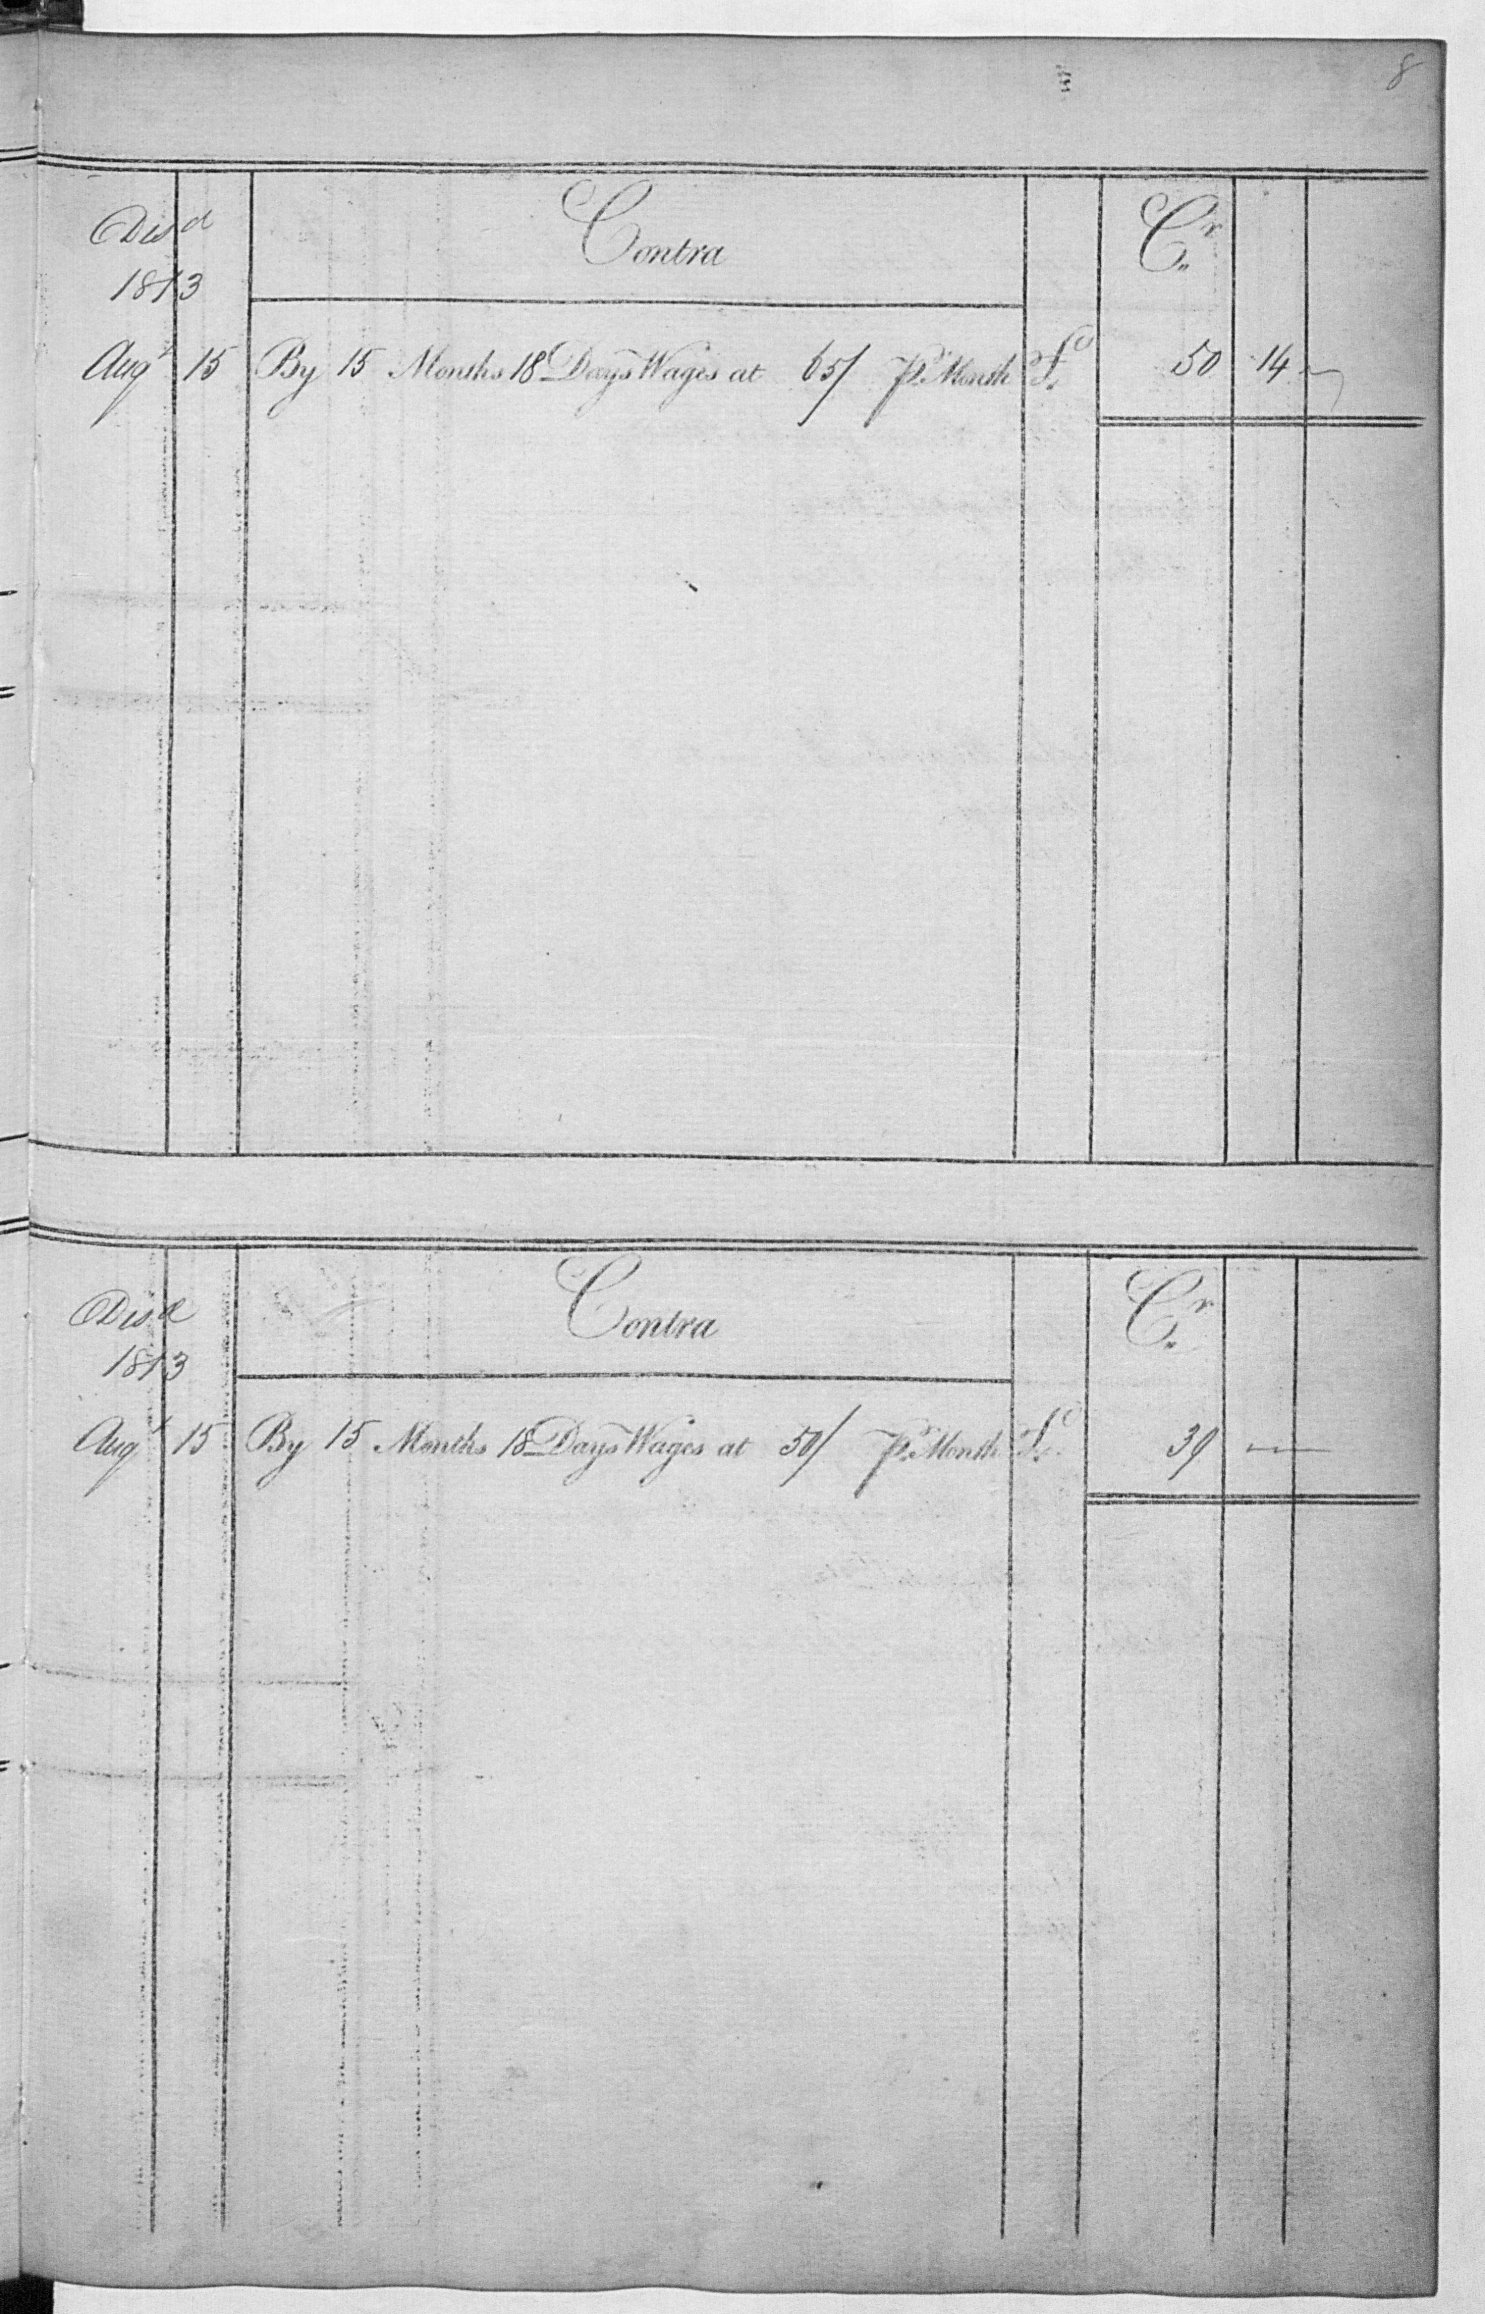 8
Disd Contra Cr
1813
Augt 15 By 15 Months 18 Days Wages at 65/ Pr Month £ 50 14 —
Disd Contra Cr
1813
Augt 15 By 15 Months 18 Days Wages at 50/ Pr Month £ 39 —